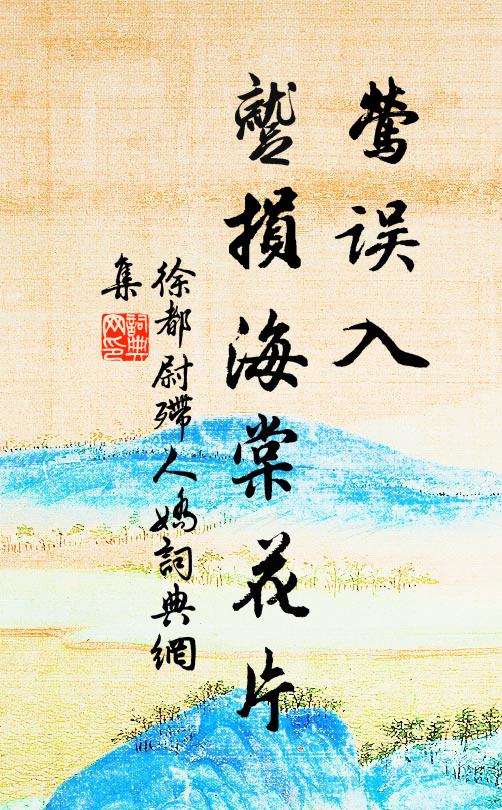 莺误入
蹵損海棠花片
徐都尉殢人嬌詞典網
集
詞典
网印